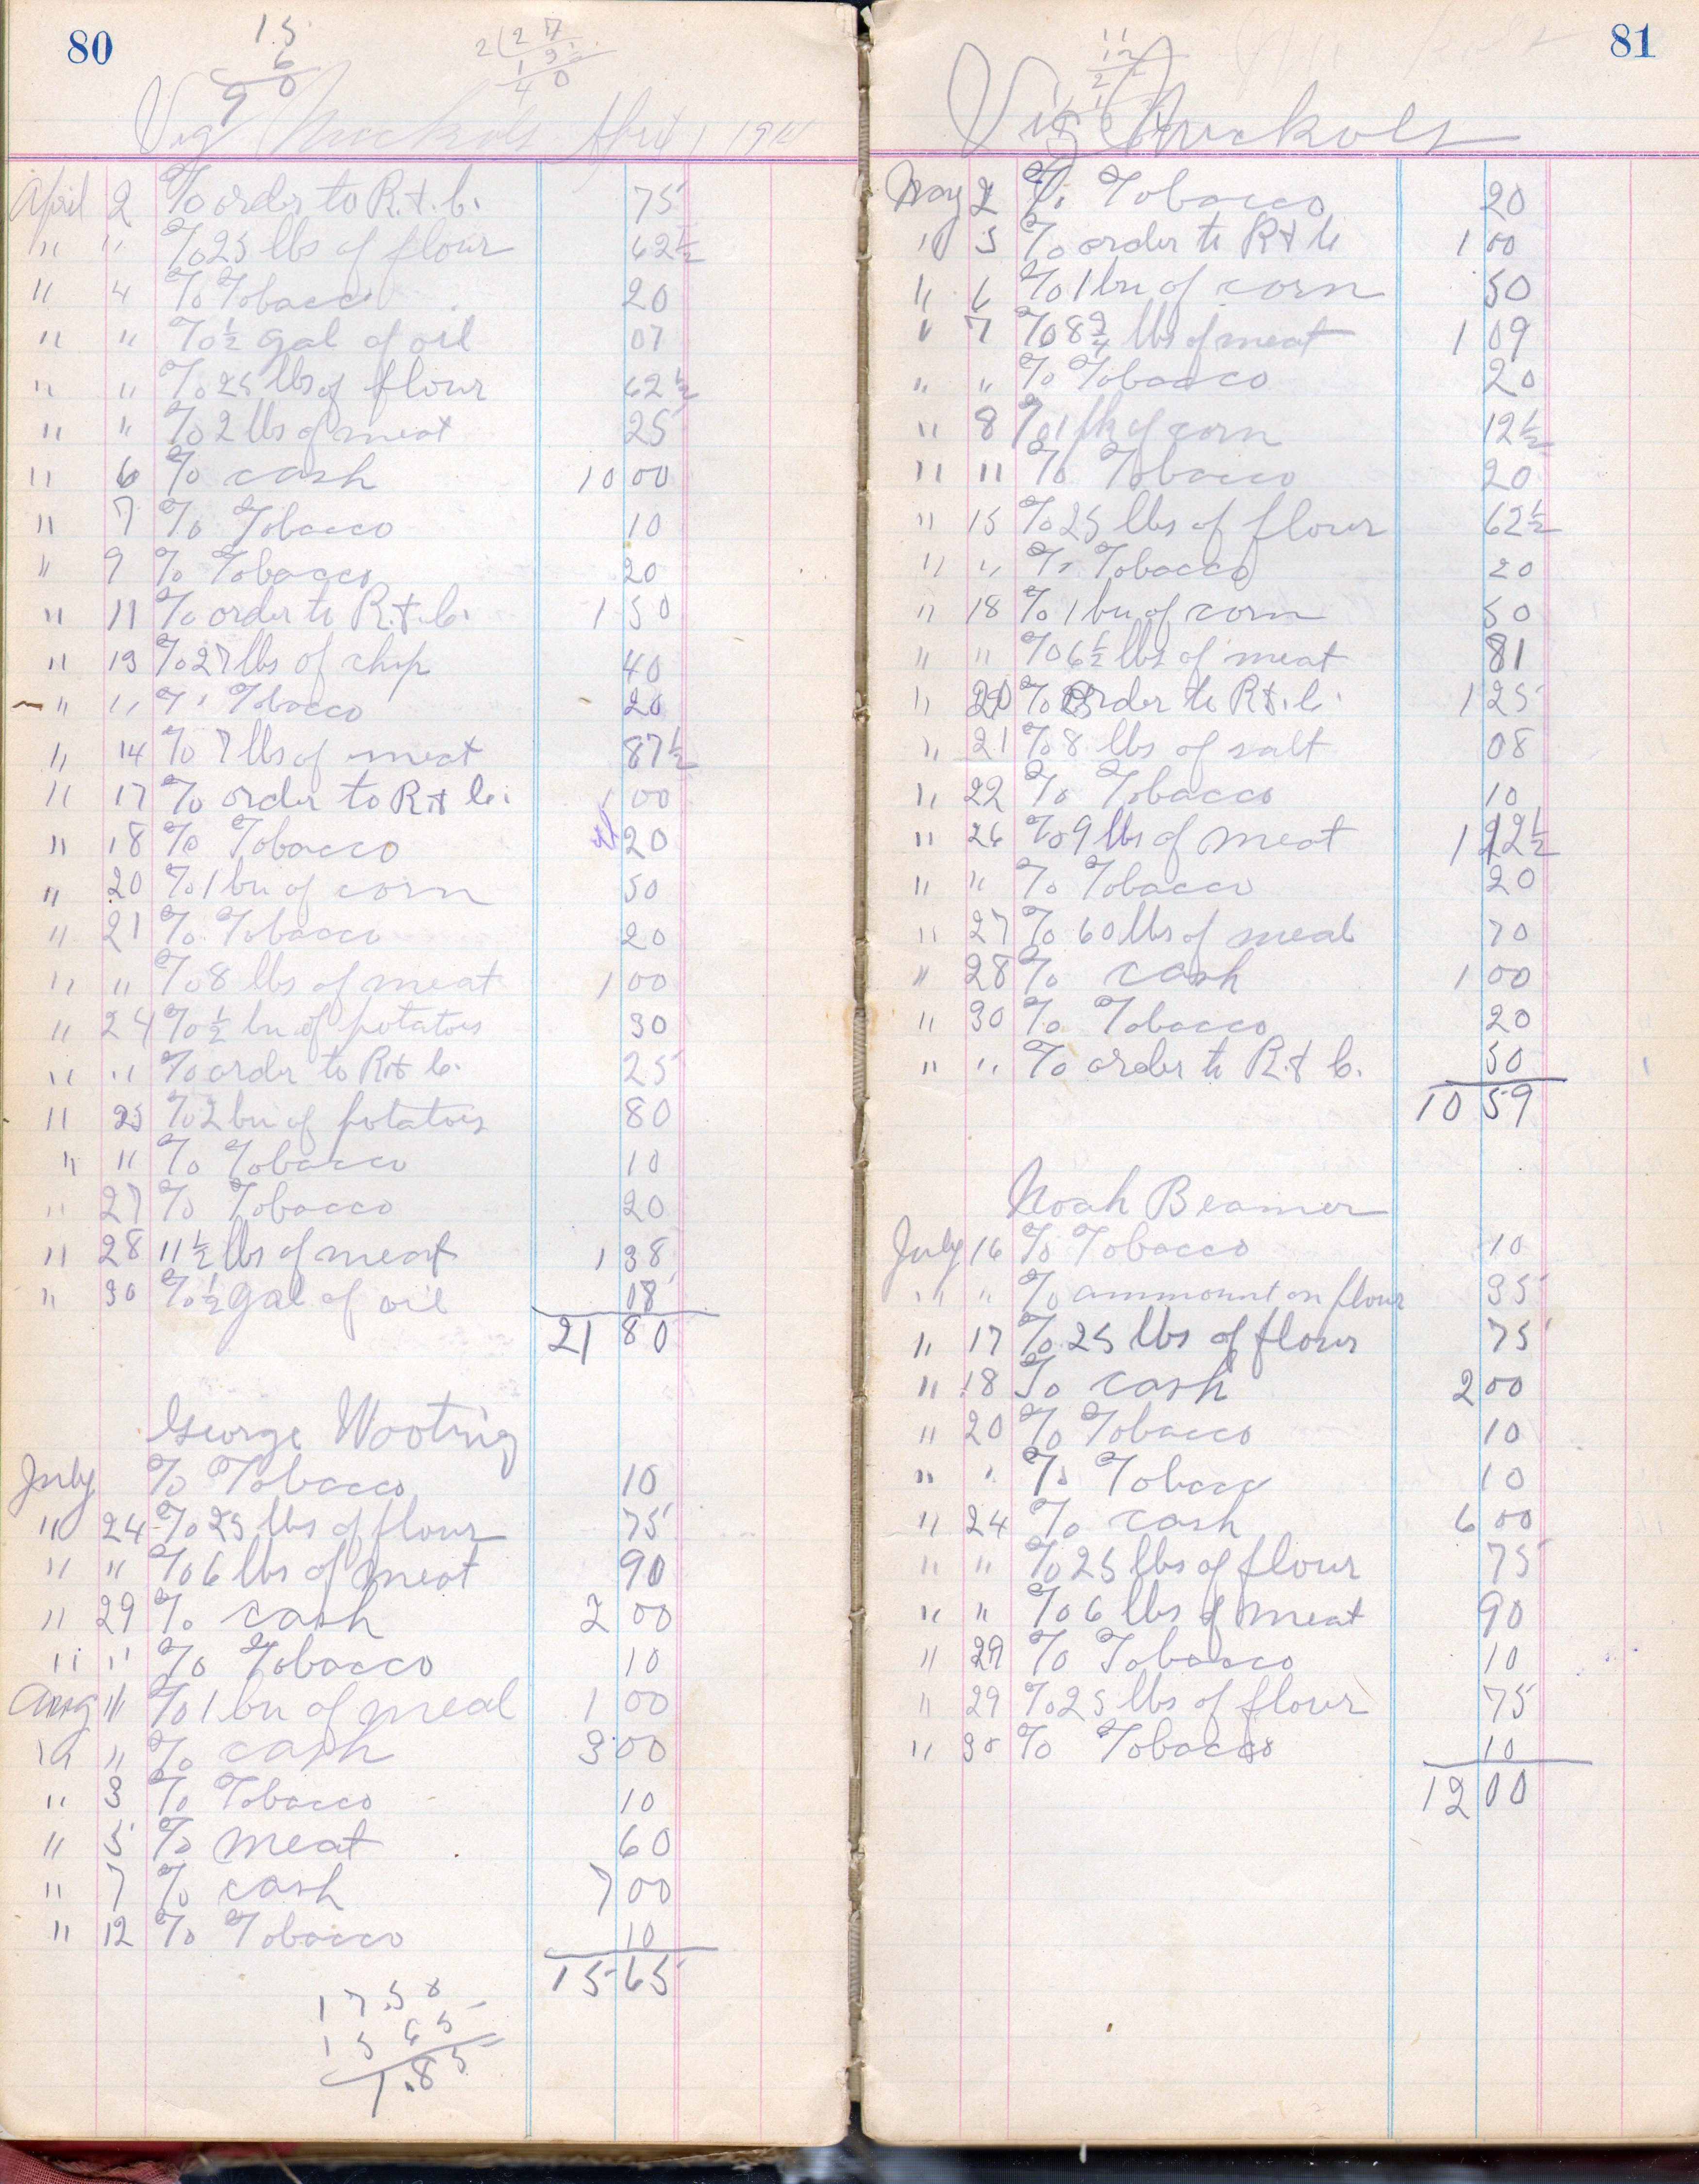 80
15
6
90
2(27
Vig Nuckols April 1 1914
April 2 % order to R. & C. 75
" " % 25 lbs of flour 62 1/2
" 4 % Tobacco 20
" " % 1/2 gal of oil 07
" " % 25 lbs of flour 62 1/2
" " % 2 lbs of meat 25
" 6 % cash 10 00
" 7 % Tobacco 10
" 9 % Tobacco 20
" 11 % order to R. & C. 1 50
" 13 % 27 lbs of chop 40
" " % Tobacco 20
" 14 % 7 lbs of meat 87 1/2
" 17 % order to R & C. 1 00
" 18 % Tobacco 20
" 20 % 1 bu of corn 50
" 21 % Tobacco 20
" " % 8 lbs of meat 1 00
" 24 % 1/2 bu of potatoes 30
" " % order to R & C. 25
" 25 % 2 bu of potatoes 80
" " % Tobacco 10
" 27 % Tobacco 20
" 28 11 1/2 lbs of meat 1 38
" 30 % 1/2 gal of oil 08
21 80
George Wooting
July % Tobacco 10
" 24 % 25 lbs of flour 75
" " % 6 lbs of meat 90
" 29 % cash 2 00
" " % Tobacco 10
Aug 11 % 1 bu of meal 1 00
" " % cash 3 00
" 3 % Tobacco 10
" 5 % meat 60
" 7 % cash 7 00
" 12 % Tobacco 10
15 65
17.50
15 65
1.85
81
Vig Nuckols
May 2 % Tobacco 20
" 5 % order to R & C 1 00
" 6 % 1 bu of corn 50
" 7 % 8 3/4 lbs of meat 1 09
" " % Tobacco 20
" 8 % 1 pk of corn 12 1/2
" 11 % Tobacco 20
" 15 % 25 lbs of flour 62 1/2
" " % Tobacco 20
" 18 % 1 bu of corn 50
" " % 6 1/2 lbs of meat 81
" 20 % order to R & C. 1 25
" 21 % 8 lbs of salt 08
" 22 % Tobacco 10
" 26 % 9 lbs of meat 1 12 1/2
" " % Tobacco 20
" 27 % 60 lbs of meal 70
" 28 % cash 1 00
" 30 % Tobacco 20
" " % order to R. & C. 50
10 59
Noah Beamer
July 16 % Tobacco 10
" " % ammount on flour 35
" 17 % 25 lbs of flour 75
" 18 % cash 2 00
" 20 % Tobacco 10
" " % Tobacc 10
" 24 % cash 6 00
" " % 25 lbs of flour 75
" " % 6 lbs of meat 90
" 29 % Tobacco 10
" 29 % 25 lbs of flour 75
" 30 % Tobacco 10
12 00